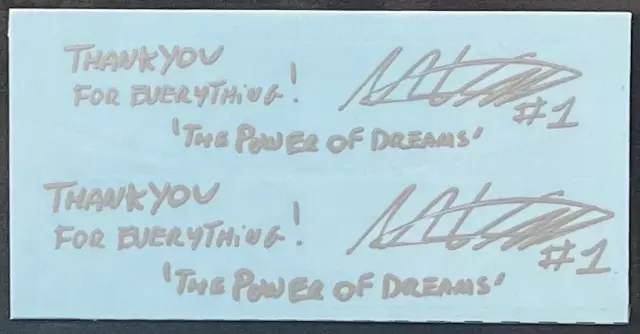 THANK YOU
FOR EVERYTHING!
#1
'THE POWER OF DREAMS'
THANK YOU
FOR EVERYTHING!
#1
'THE POWER OF DREAMS'